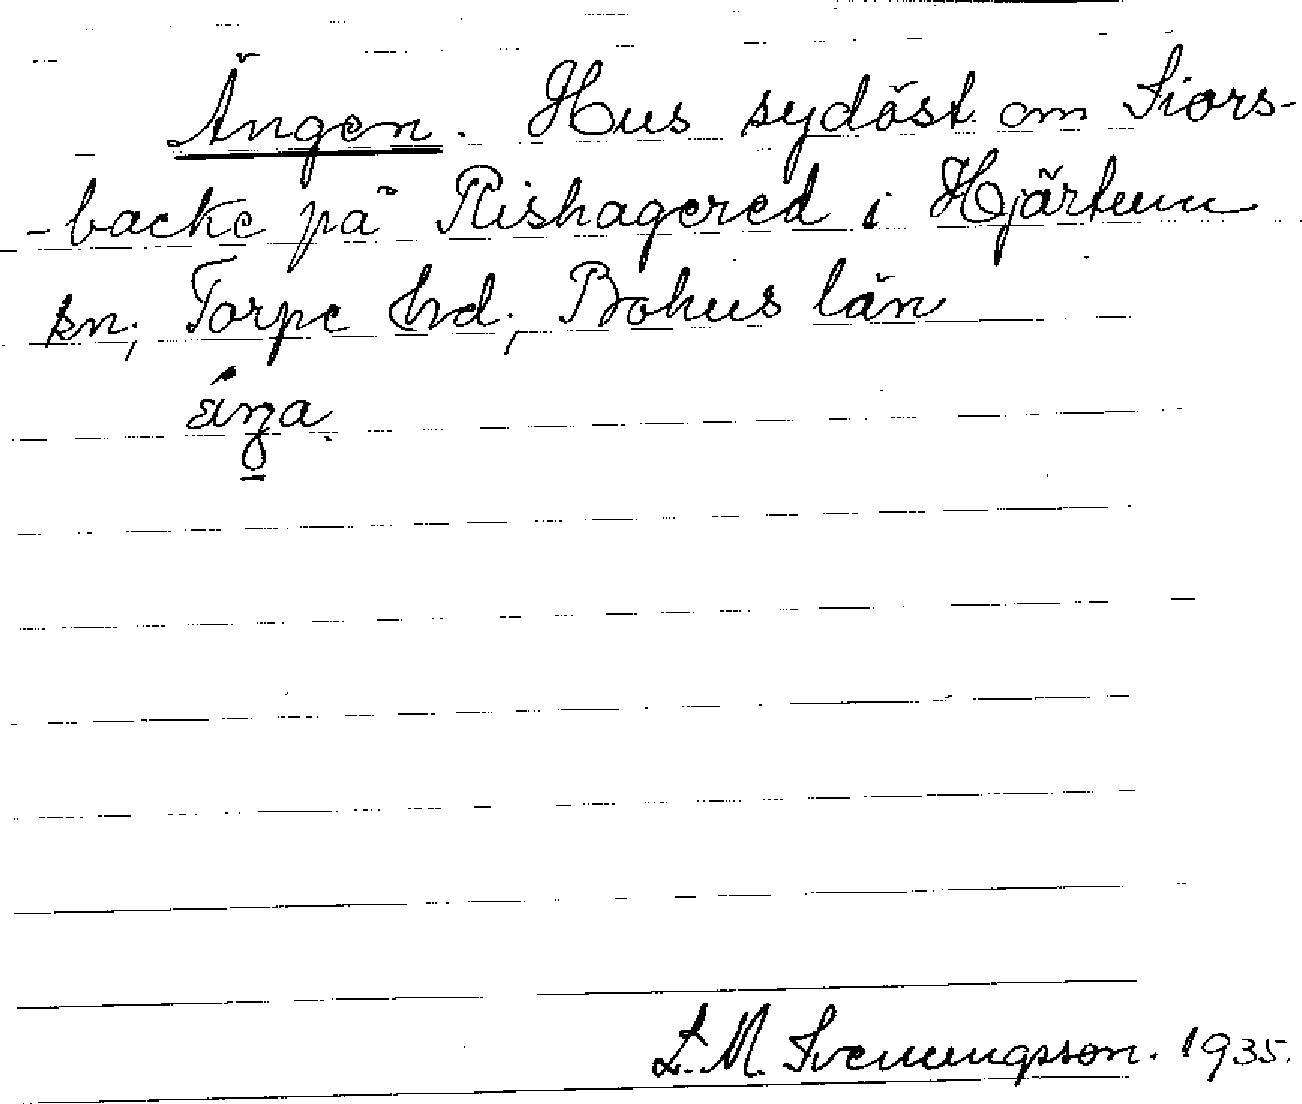 Ängen. Hus sydöst om Siors-
-backe på Rishagered i Hjärtum
sn; Torpe hd; Bohus län
L. M. Svenungsson. 1935.